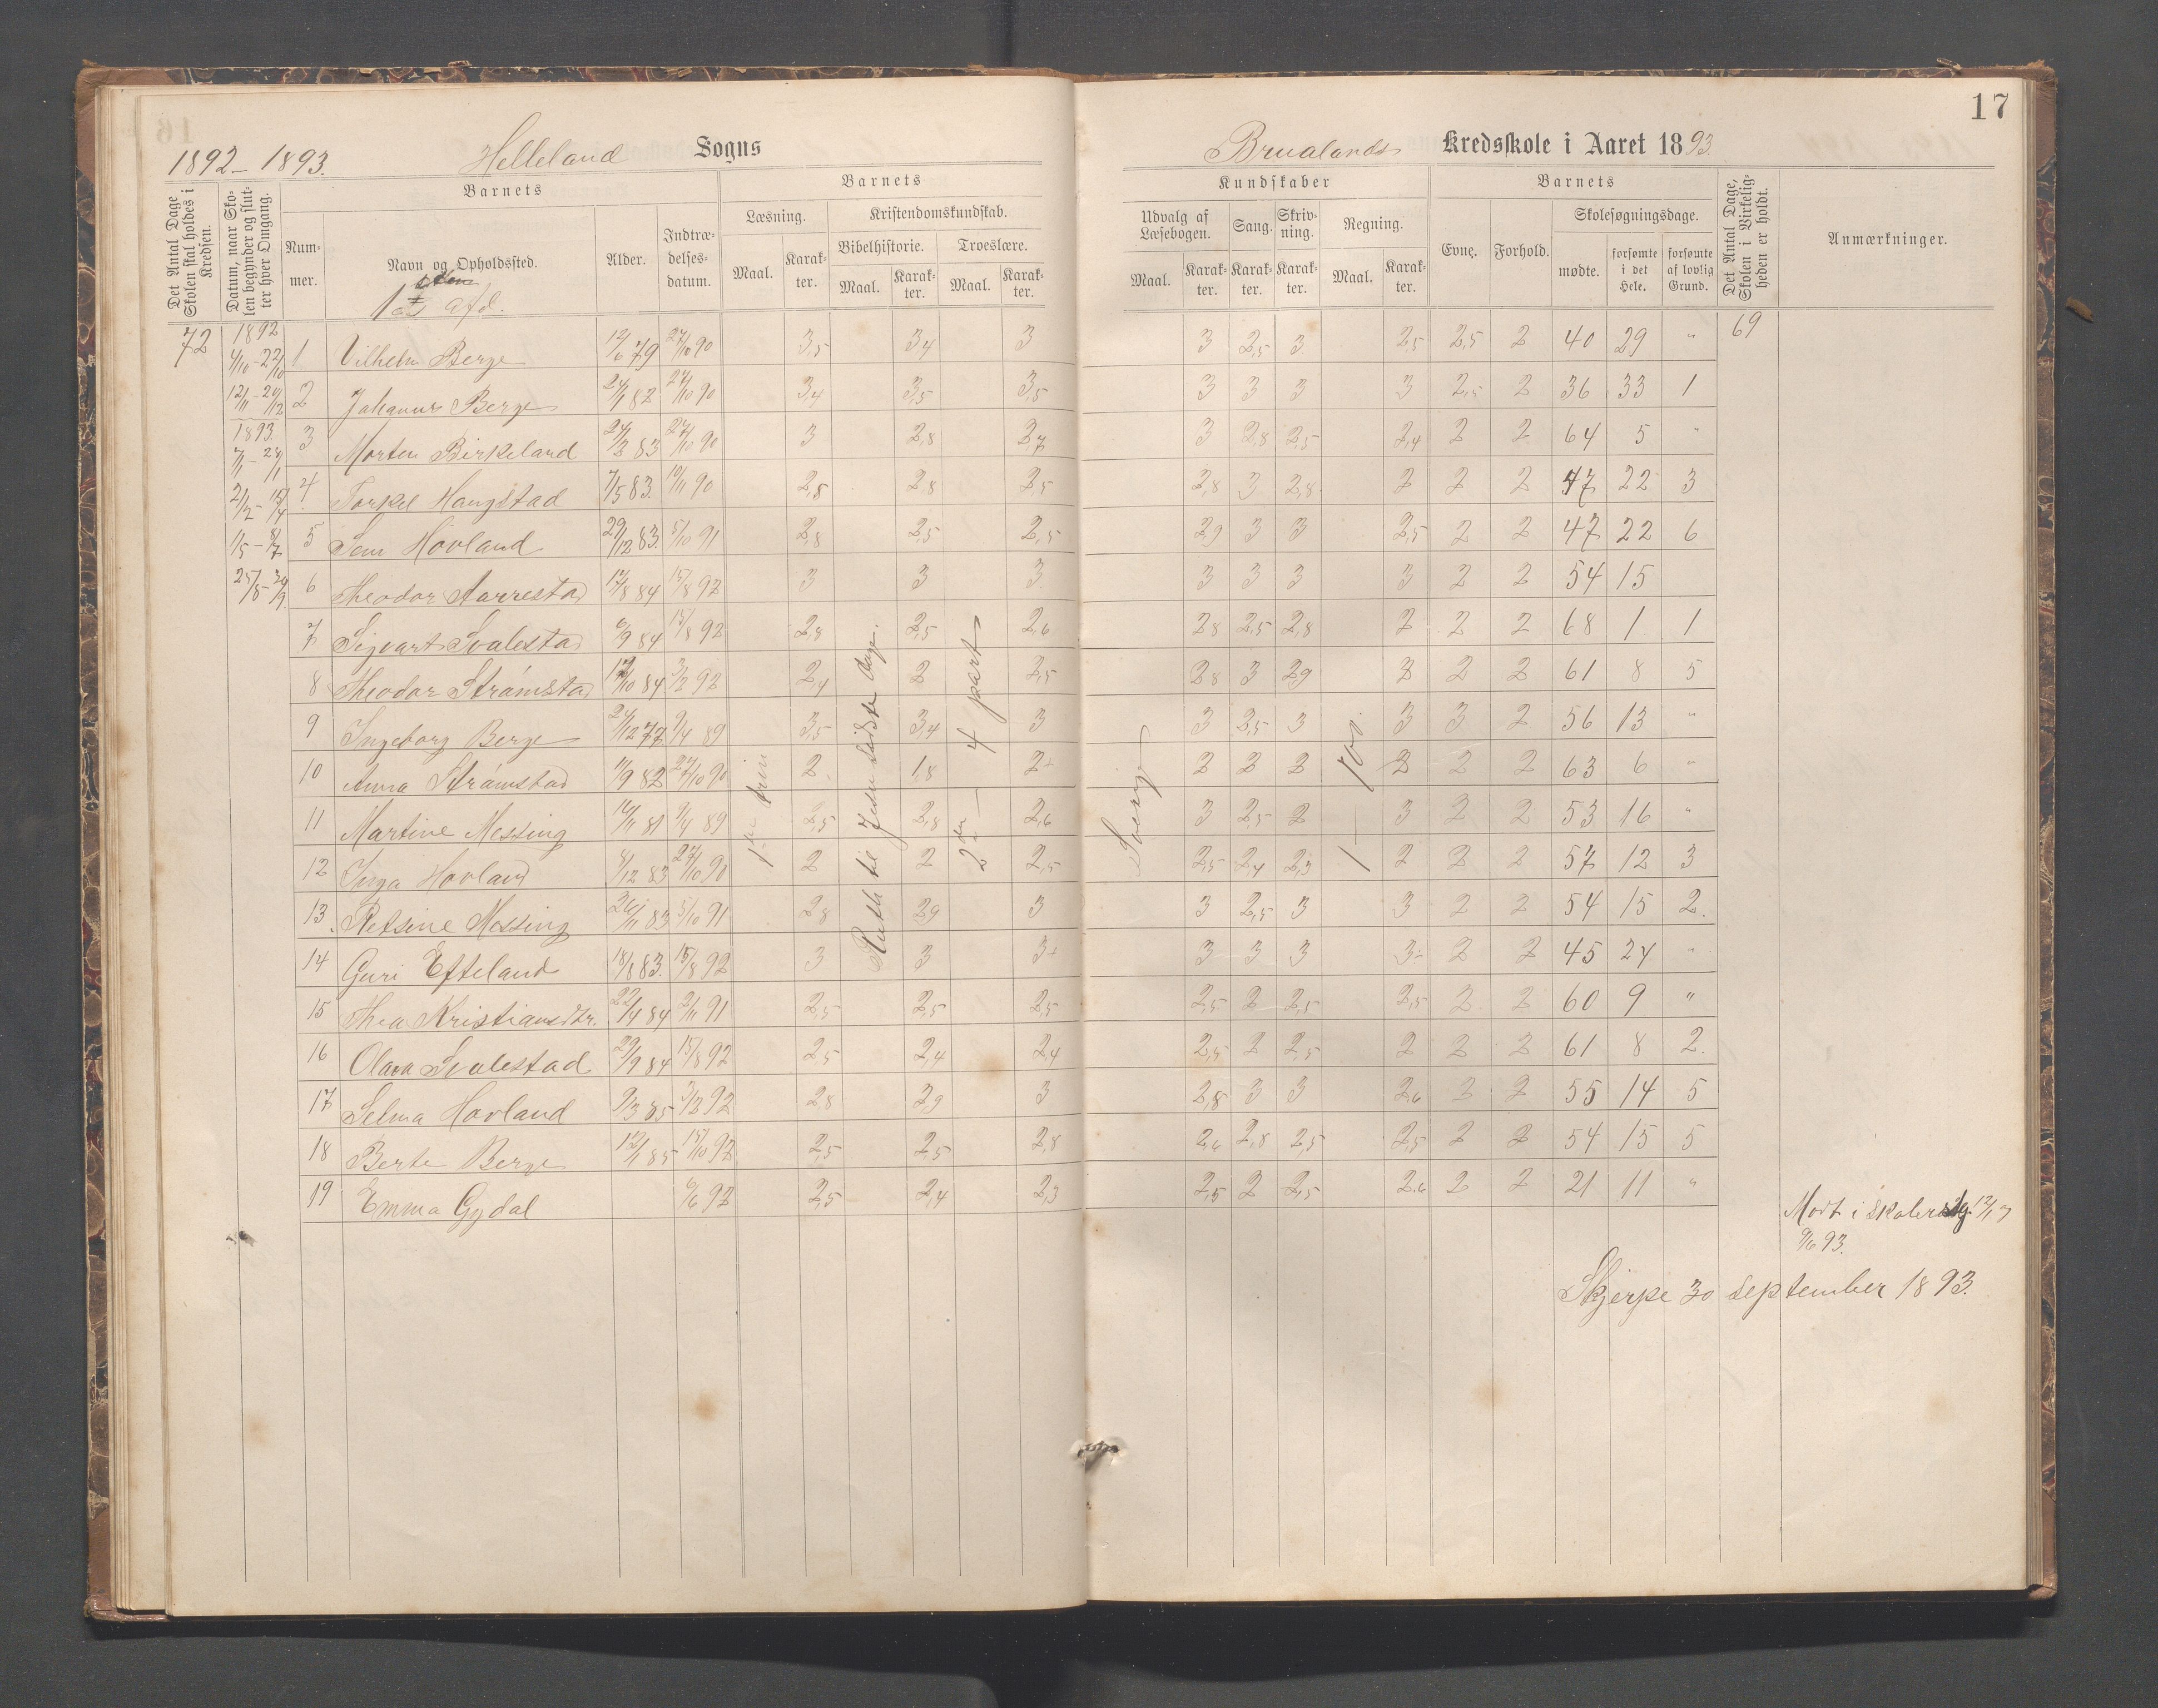 17
1892-1893. Helleland Sogns
Brualands Kredsskole i Aaret 1893.
Det Antal Dage Skolen skal holdes i Kredsen.
Datum, naar Skolen begynder og slutter hver Omgang.
Barnets
Nummer.
Navn og Opholdssted.
1ste afd.
Alder.
Indtrædelsesdatum.
Barnets
Læsning.
Maal.
Karakter.
Kristendomskundskab.
Bibelhistorie.
Maal.
Karakter.
Troeslære.
Maal.
Karakter.
Kundskaber
Udvalg af Læsebogen.
Maal.
Karakter.
Sang.
Karakter.
Skrivning.
Karakter.
Regning.
Maal.
Karakter.
Barnets
Evne.
Forhold.
Skolesøgningsdage.
mødte.
forsømte i det Hele.
forsømte af lovlig Grund.
Det Antal Dage, Skolen i Virkeligheden er holdt.
Anmærkninger.
72
1892
4/10-22/10
12/11-20/12
1893.
7/1-28/1
2/2-15/4
1/5-8/7
25/8-30/9.
69
1 Vilhelm Berge 12/6 79 27/10 90 3,5 3,4 3 3 2,5 3 2,5 2,5 2 40 29 "
2 Johanne Berge 24/1 82 27/10 90 3,4 3,5 3,5 3 3 3 3 2,5 2 36 33 1
3 Morten Birkeland 24/2 83 27/10 90 3 2,8 2,7 3 2,8 2,5 2,4 2 2 64 5 "
4 Torkel Haugstad 7/5 83. 10/11 90 2,8 2,8 2,5 2,8 3 2,8 2 2 2 47 22 3
5 Sem Hovland 29/12 83. 5/10 91 2,8 2,5 2,5 2,9 3 3 2,5 2 2 47 22 6
6 Theodor Aarrestad 12/8 84 15/8 92 3 3 3 3 3 3 3 2 2 54 15
7 Sigvart Svalestad 6/9 84 15/8 92 2,8 2,5 2,6 2,8 2,5 2,8 2 2 2 68 1 1
8 Theodor Strømstad 12/10 84 3/2 92 2,4 2 2,5 2,8 3 2,9 2 2 2 61 8 5
9 Ingeborg Berge 24/12 77 2/4 89 3,5 3,4 3 3 2,5 3 3 3 2 56 13 "
10 Anna Strømstad 11/9 82 27/10 90 2 1,8 2+ 2 2 2 2 2 2 63 6 "
11 Martine Messing 14/11 81 2/4 89 2,5 2,8 2,6 3 2,5 2 3 2 2 53 16 "
12 Inga Hovland 8/12 83 27/10 90 2 2 2,5 2,5 2,4 2,3 2 2 2 57 12 3
13. Retsine Messing 26/11 83 5/10 91 2,8 2,9 3 3 2,5 3 3 2 2 54 15 2.
14 Guri Efteland 18/8 83. 15/8 92 3 3 3+ 3 3 3 3÷ 2 2 45 24 "
15 Thea Kristiansdtr. 22/4 84 2/11 91 2,5 2,5 2,5 2,5 2 2,5 2,5 2 2 60 9 "
16 Olava Svalestad 29/9 84 15/8 92 2,5 2,4 2,4 2,5 2 2,5 2 2 2 61 8 2.
17 Selma Hovland 9/3 85 3/2 92 2,8 2,9 3 2,8 3 3 2,6 2 2 55 14 5
18 Berte Berge 12/1 85 15/10 92 2,5 2,5 2,8 2,6 2,8 2,5 2,5 2 2 54 15 5
19 Emma Gydal 6/6 92 2,5 2,4 2,3 2,5 2 2,5 2,6 2 2 21 11 "
1ste trin
Ruth til Jesu sidste dage.
2den - 4 part
Sverige
1 - 100
Mødt i skolen
9/6 93.
Skjerpe 30 september 1893.